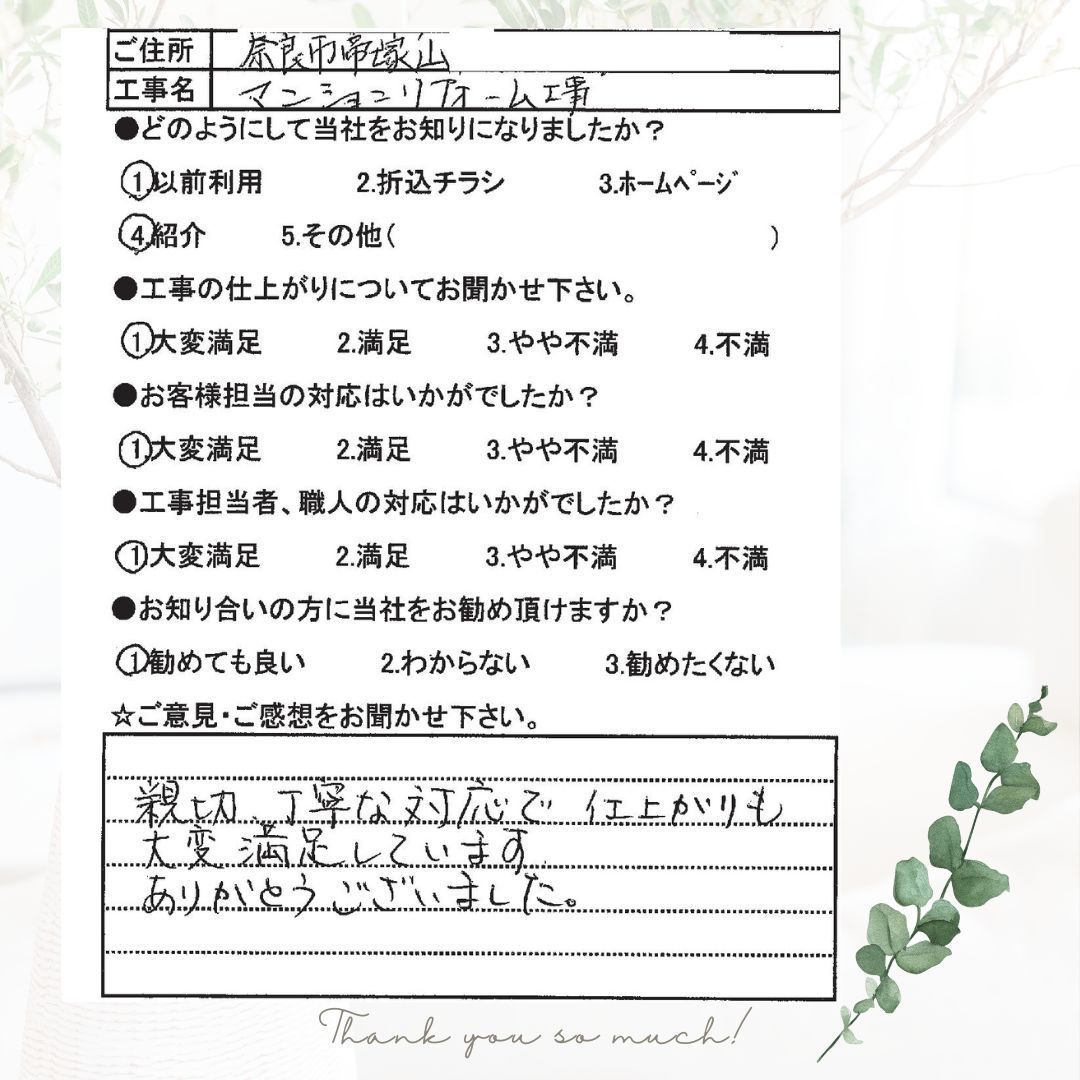 ご住所 奈良市帝塚山
工事名 マンションリフォーム工事
●どのようにして当社をお知りになりましたか？
1.以前利用 2.折込チラシ 3.ホームページ
4.紹介 5.その他( )
●工事の仕上がりについてお聞かせ下さい。
1.大変満足 2.満足 3.やや不満 4.不満
●お客様担当の対応はいかがでしたか？
1.大変満足 2.満足 3.やや不満 4.不満
●工事担当者、職人の対応はいかがでしたか？
1.大変満足 2.満足 3.やや不満 4.不満
●お知り合いの方に当社をお勧め頂けますか？
1.勧めても良い 2.わからない 3.勧めたくない
☆ご意見・ご感想をお聞かせ下さい。
親切、丁寧な対応で 仕上がりも
大変満足しています
ありがとうございました。
Thank you so much!